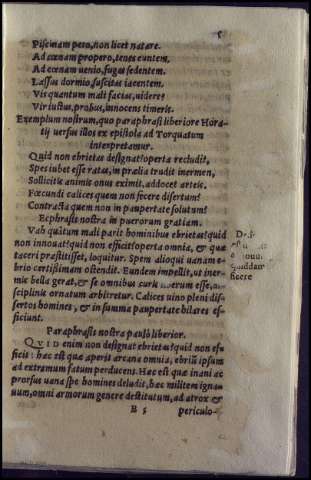 5
Piscinam peto, non licet natare.
Ad cœnam propero, tenes euntem,
Ad cœnam uenio, fugas sedentem.
Lassus dormio, suscitas iacentem.
Vis quantum mali facias, uidere?
Vir iustus, probus, innocens timeris.
Exemplum nostrum, quo paraphrasi liberiore Hora-
tij uersus illos ex epistola ad Torquatum
interpretamur.
Quid non ebrietas designat? operta recludit,
Spes iubet esse ratas, in prælia trudit inermen,
Sollicitis animis onus eximit, addocet arteis.
Fœcundi calices quem non fecere disertum?
Contracta quem non in paupertate solutum?
Ecphrasis nostra in puerorum gratiam.
Vah quātum mali parit hominibus ebrietas! quid
non innouat? quid non efficit? operta omnia, & quæ
taceri præstitisset, loquitur. Spem alioqui uanam e-
brio certissimam ostendit. Eundem impellit, ut iner-
mis bella gerat, & se omnibus curis esse, a
sciplinis ornatum arbitretur. Calices uino pleni di-
sertos homines, & in summa paupertate hilares ef-
ficiunt.
quiddam
ficere
Paraphrasis nostra paulò liberior.
QVID enim non designat ebrietas? quid non ef-
ficit? hæc est quæ aperit arcana omnia, ebriū ipsum
ad extremum fatum perducens. Hæc est quæ inani ac
prorsus uana spe homines deludit, hæc militem igna-
uum, omni armorum genere destitutum, ad atrox &
B 5 periculo-